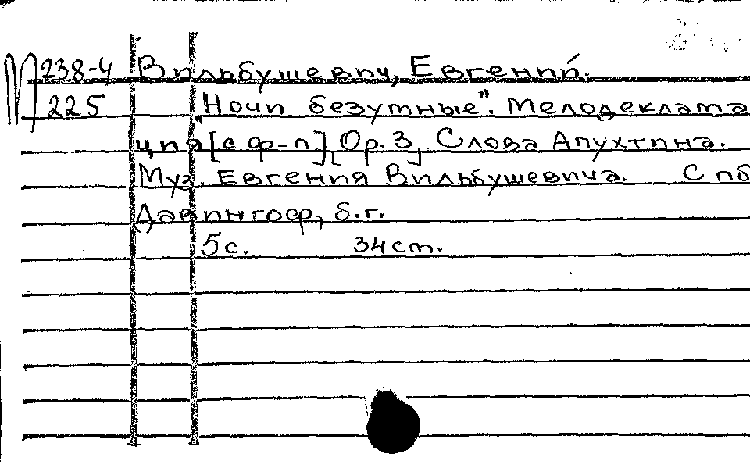 М 238-4 Вильбушевич, Евгений.
225 "Ночи безумные". Мелодеклама
ция [с ф-п] [Ор. 3] Слова Апухтина.
Муз. Евгения Вильбушевича. Спб
Давингоф, б.г.
5с. 34ст.